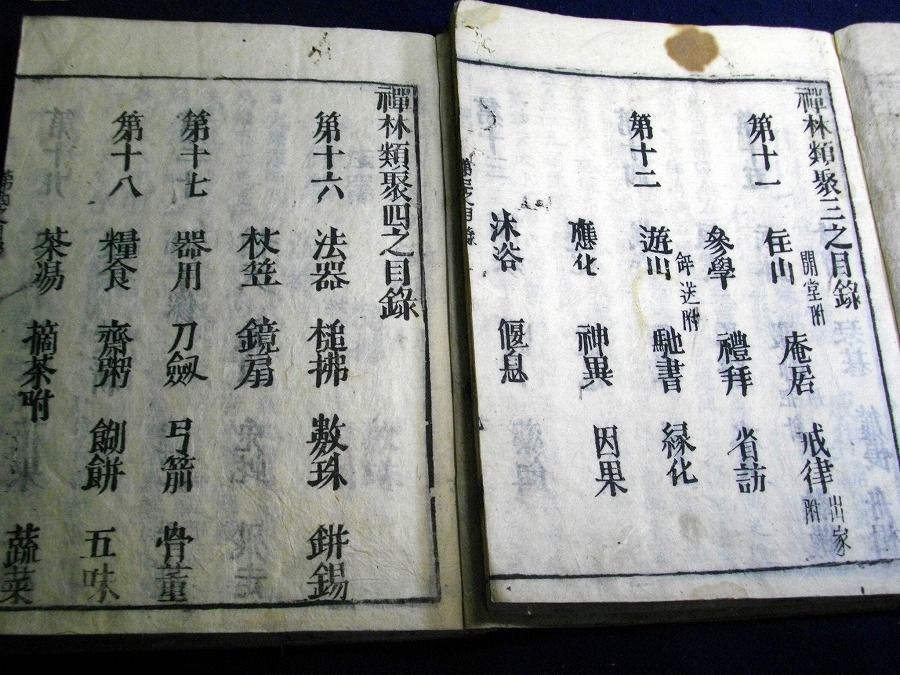 禪林類聚三之目錄
第十一 住山 開堂附 庵居 戒律 出家附
參學 禮拜 省訪
第十二 遊山 餞送附 馳書 緣化
應化 神異 因果
沐浴 偃息
禪林類聚四之目錄
第十六 法器 槌拂 數珠 鉼錫
杖笠 鏡扇
第十七 器用 刀劔 弓箭 骨董
第十八 糧食 齋粥 餬餅 五味
茶湯 摘茶附 蔬菜